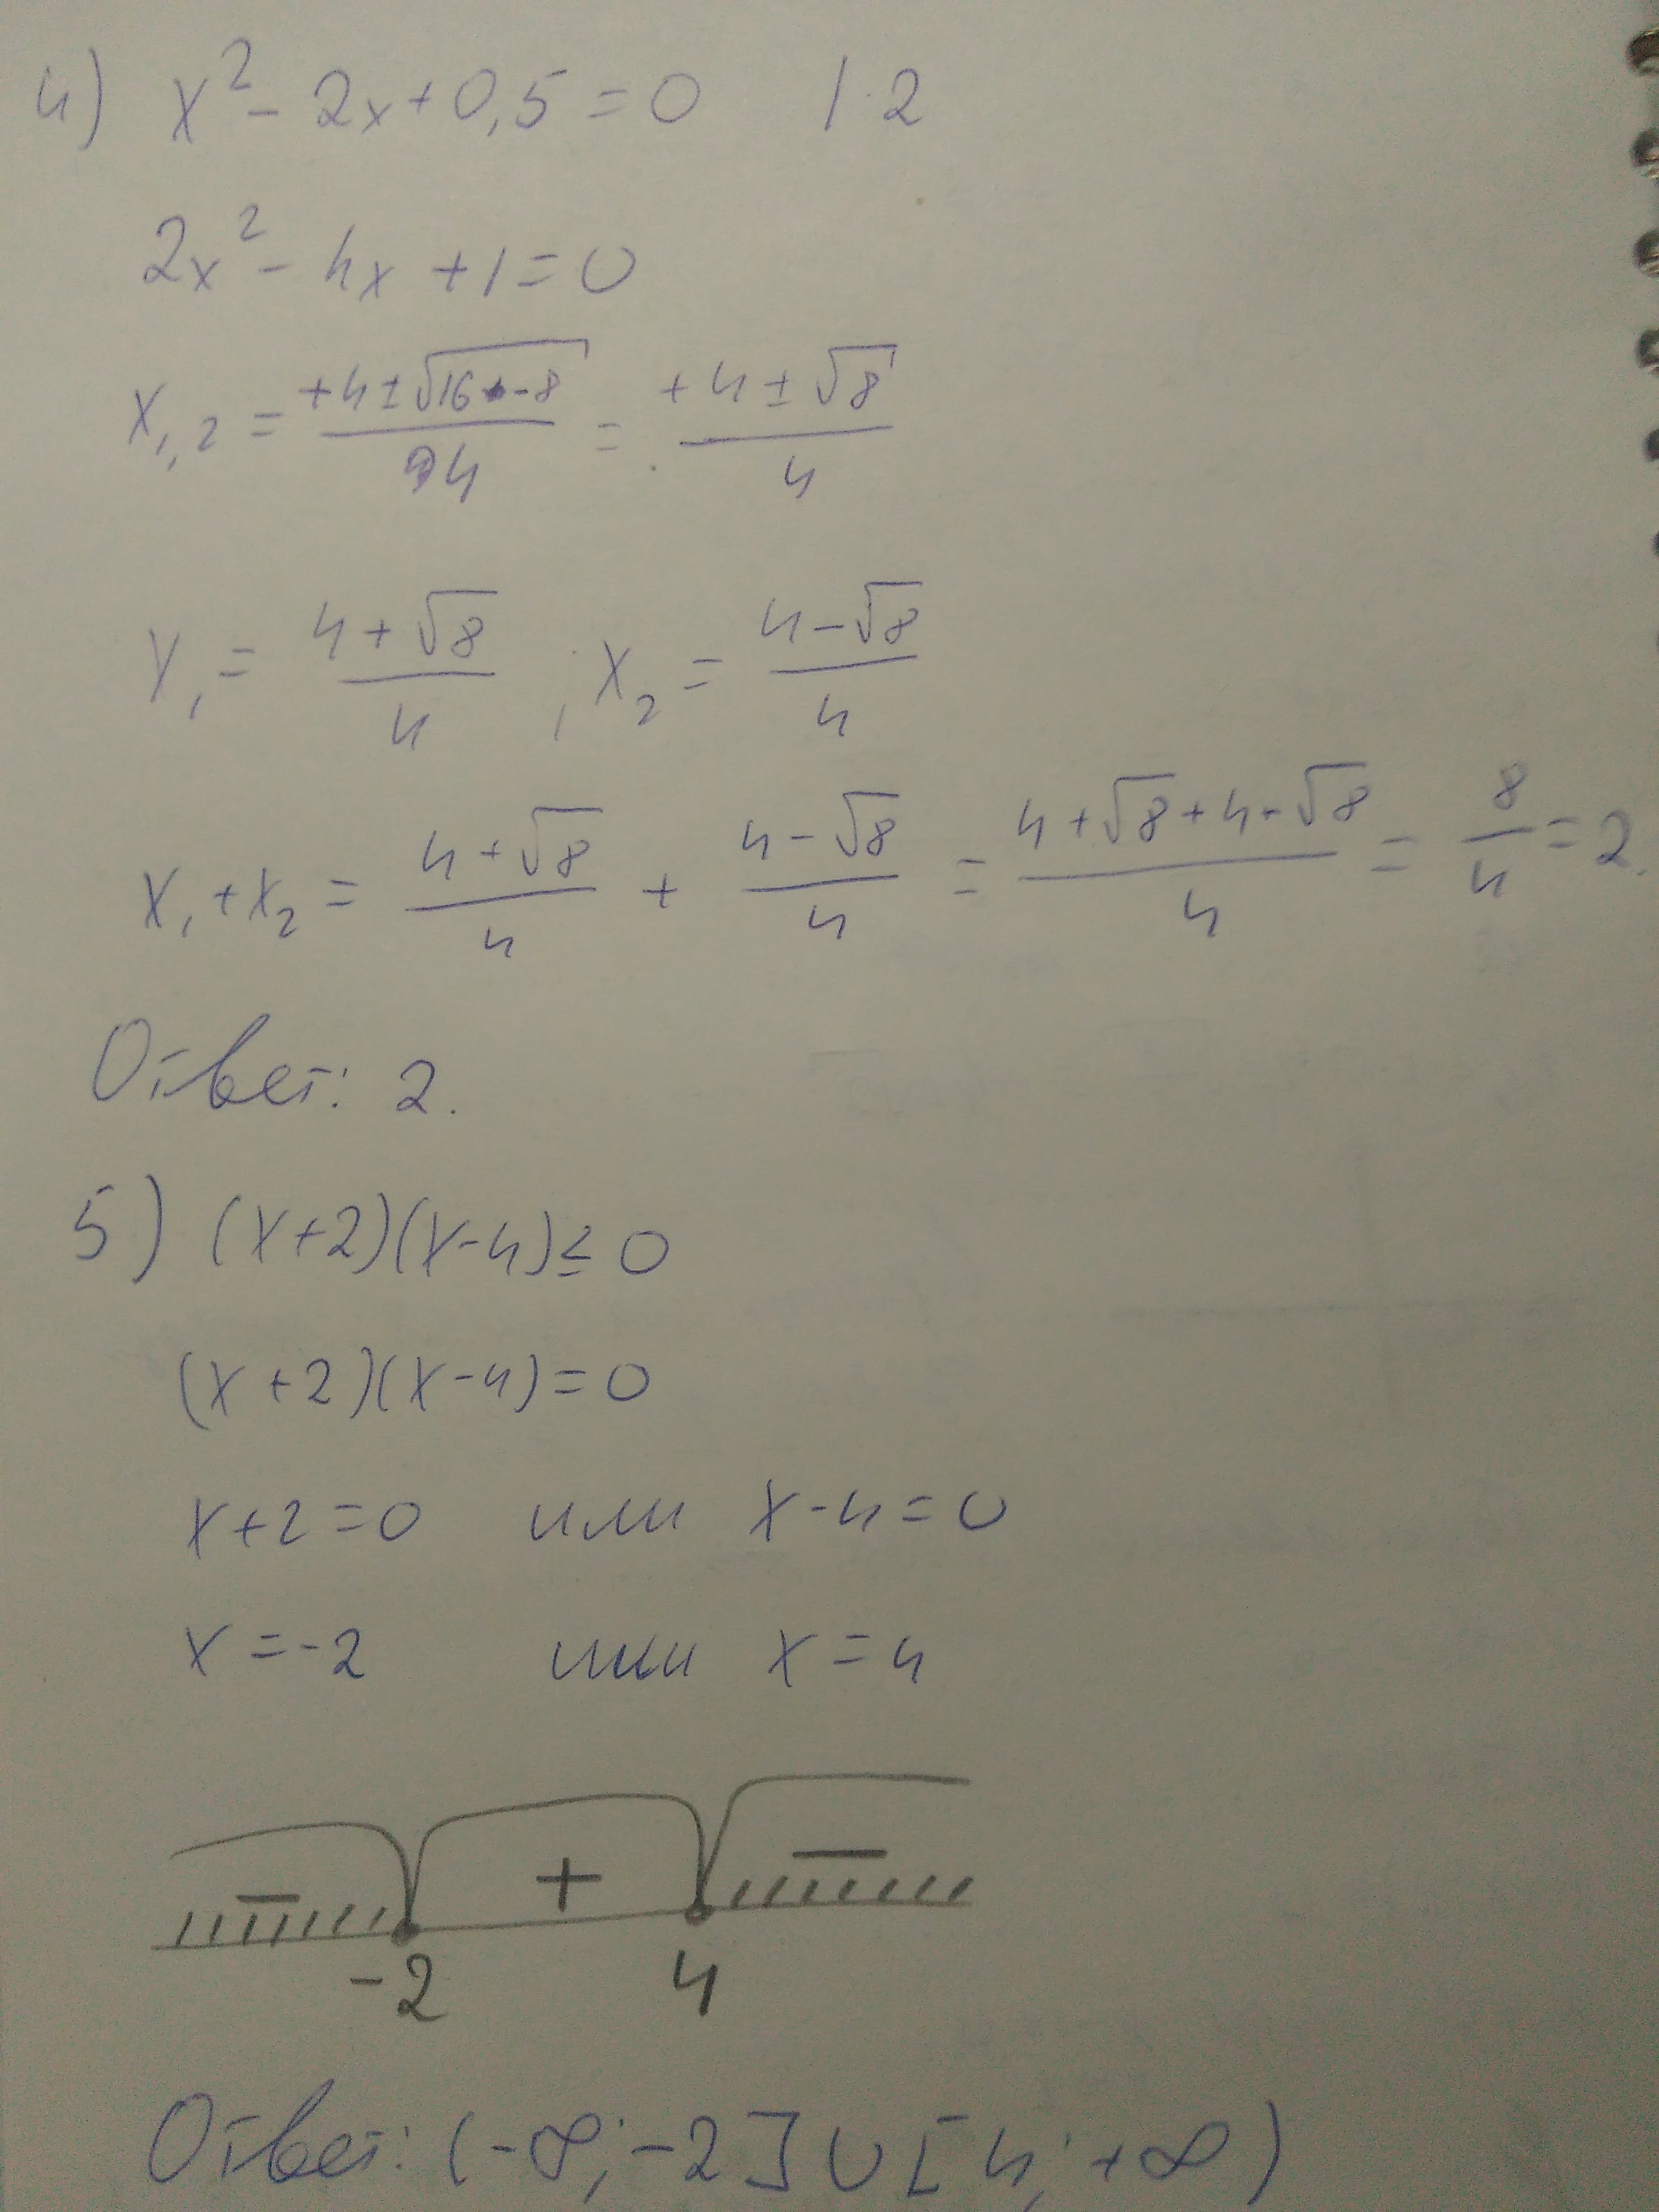 4) x² - 2x + 0,5 = 0 | · 2
2x² - 4x + 1 = 0
x₁,₂ = (+4 ± √(16 - 8)) / 4 = (+4 ± √8) / 4
x₁ = (4 + √8) / 4 , x₂ = (4 - √8) / 4
x₁ + x₂ = (4 + √8) / 4 + (4 - √8) / 4 = (4 + √8 + 4 - √8) / 4 = 8 / 4 = 2.
Ответ: 2.
5) (x+2)(x-4) ≤ 0
(x+2)(x-4) = 0
x+2=0 или x-4=0
x=-2 или x=4
− + −
-2 4
Ответ: (-∞; -2] ∪ [4; +∞)